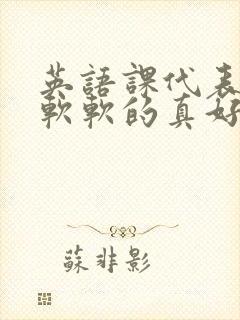 英語課代表
軟軟的真好
蘇非影